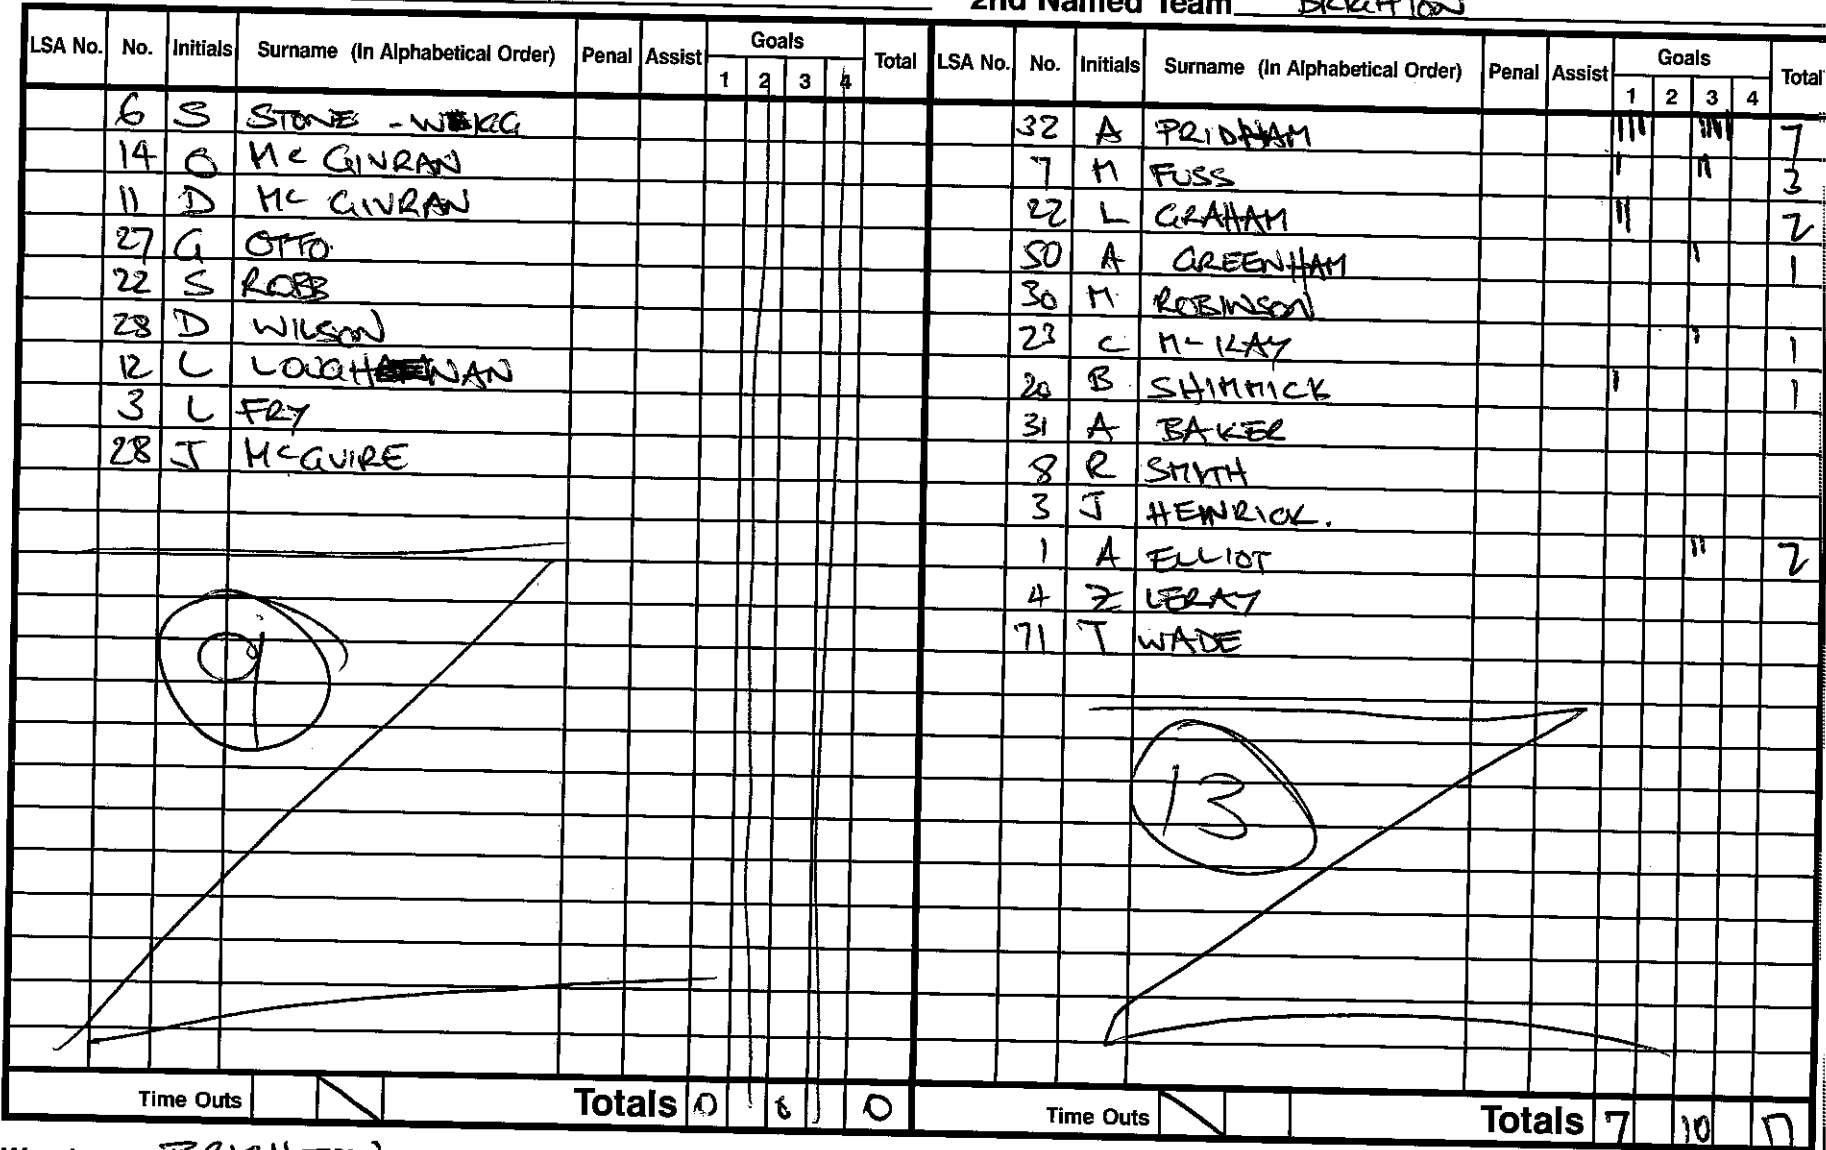 2nd Named Team BRIGHTON
LSA No. No. Initials Surname (In Alphabetical Order) Penal Assist Goals 1 2 3 4 Total
6 S STONE - WEKG
14 O Mc GIVRAN
11 D Mc GIVRAN
27 G OTTO
22 S ROBB
28 D WILSON
12 L LOUGHNAN
3 L FRY
28 J McGUIRE
9
Time Outs Totals 0 0 0
LSA No. No. Initials Surname (In Alphabetical Order) Penal Assist Goals 1 2 3 4 Total
32 A PRIDHAM III IIII 7
7 M FUSS I II 3
22 L GRAHAM II 2
50 A GREENHAM I 1
30 M ROBINSON
23 C Mc KAY I 1
20 B SHIMMICK I 1
31 A BAKER
8 R SMITH
3 J HEINRICK.
1 A ELLIOT II 2
4 Z LERAY
71 T WADE
13
Time Outs Totals 7 10 17
BRIGHTON